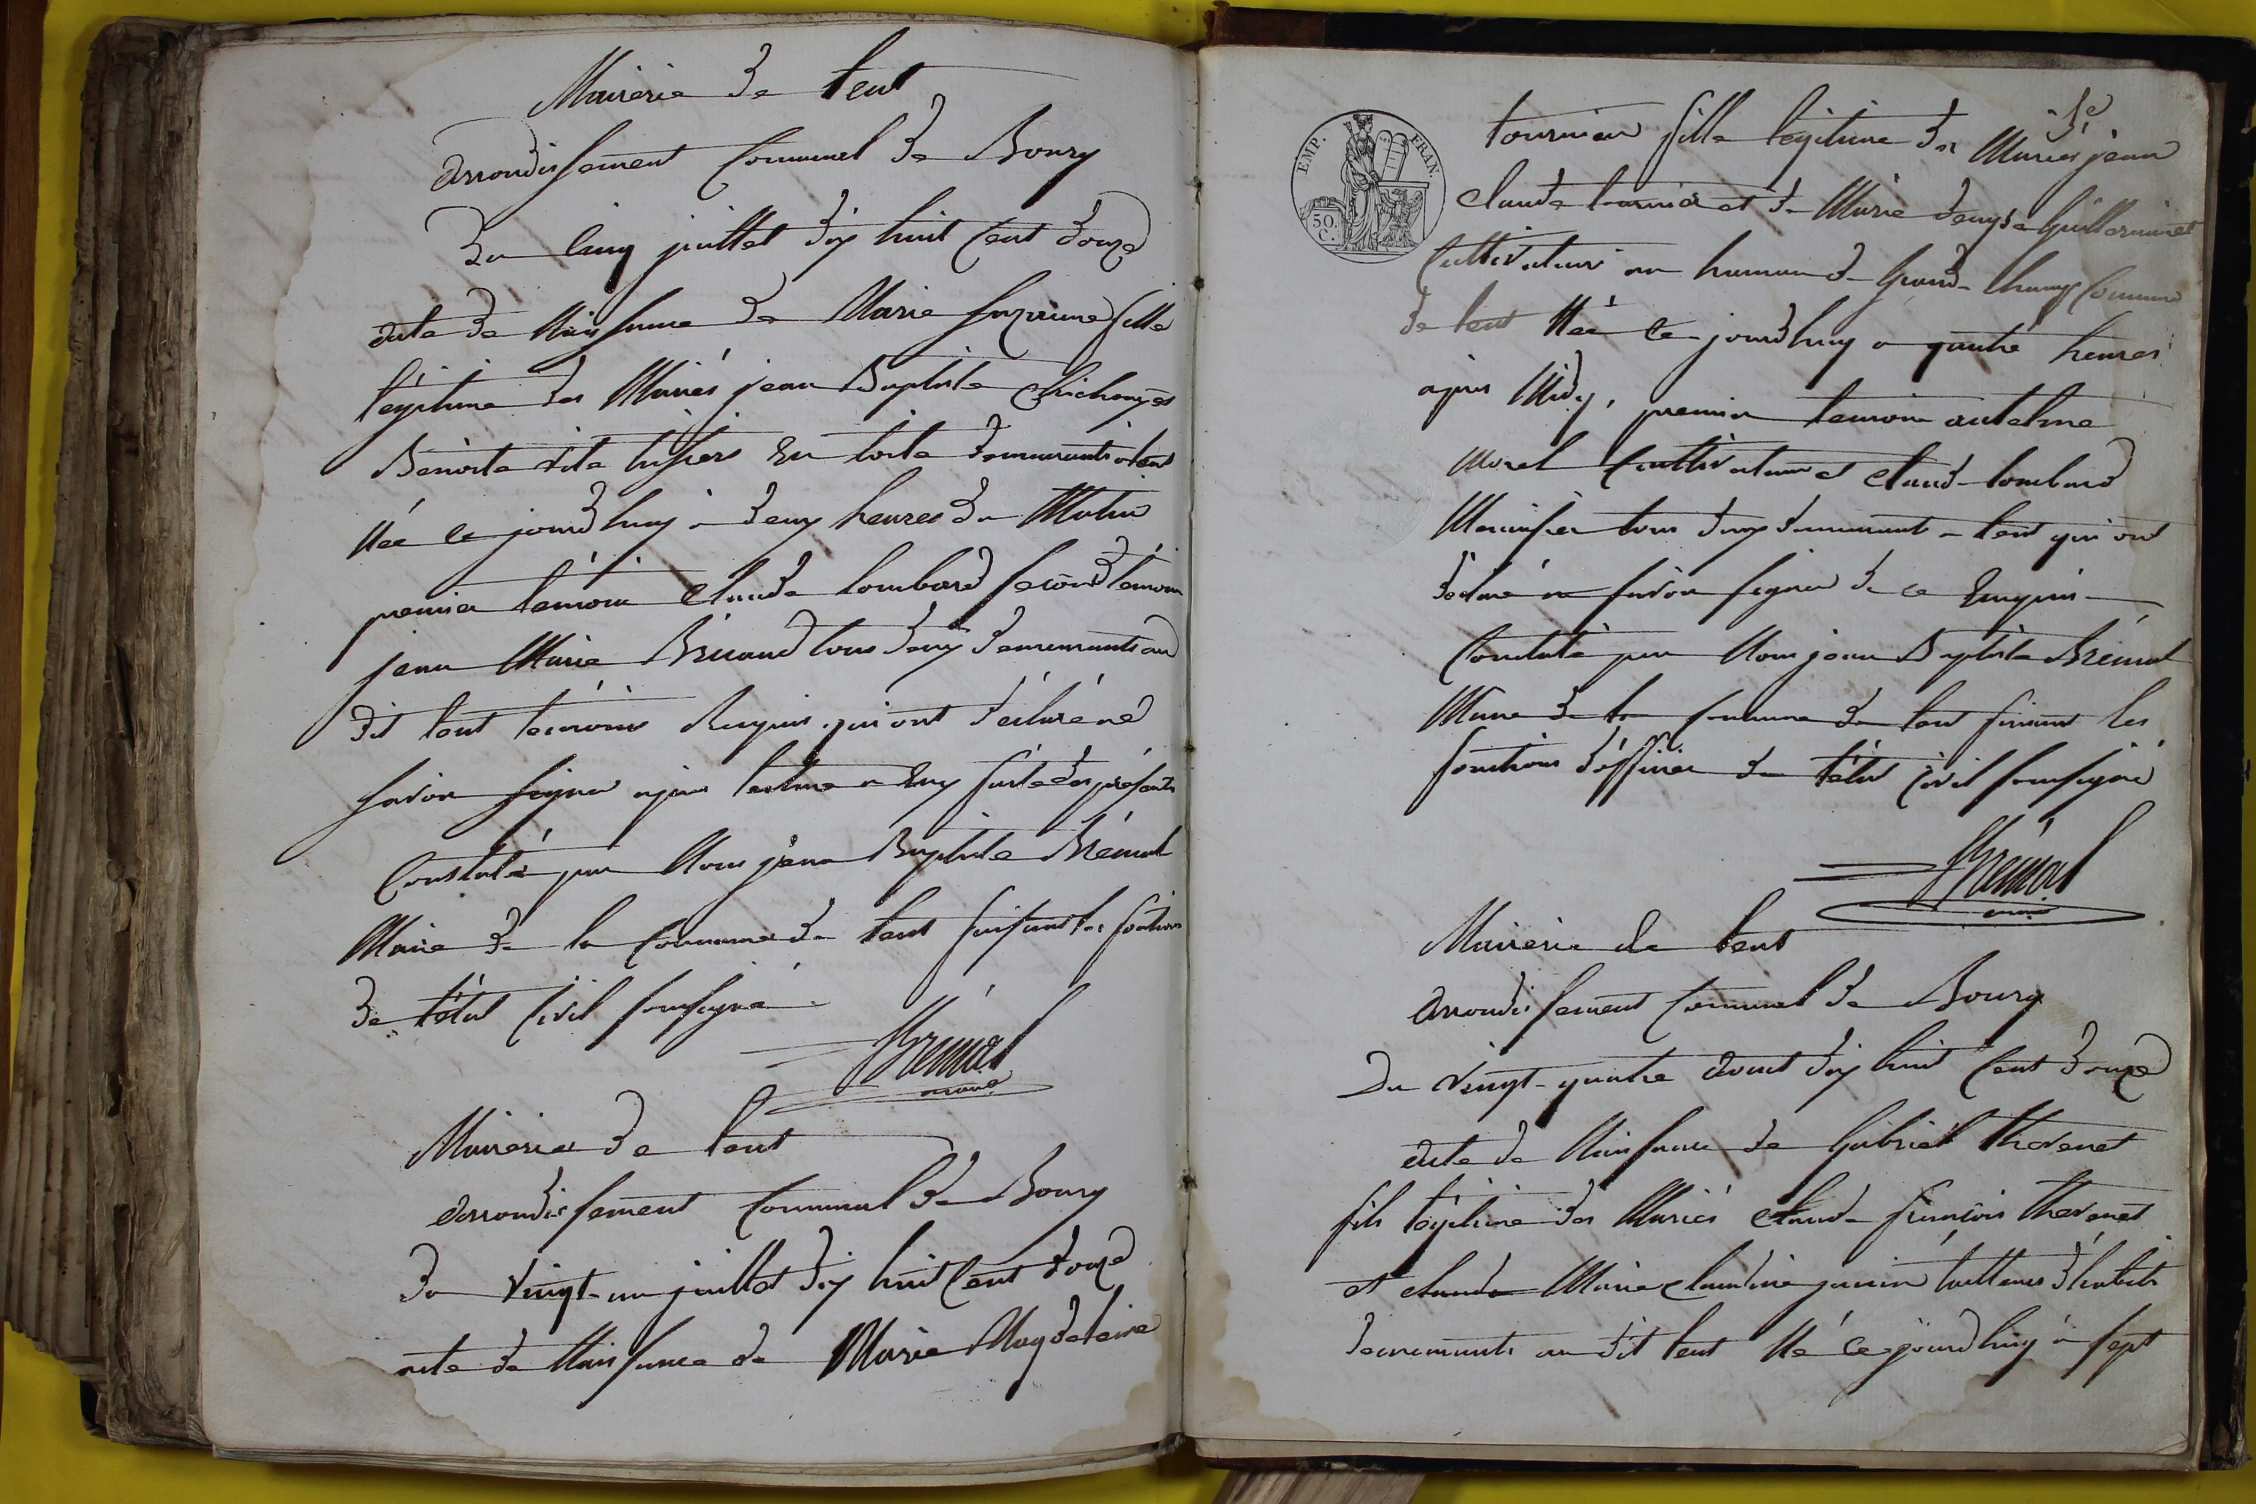 Mairerie de tent
arrondissement Communal de Bourg
du cinq juillet dix huit Cent douze
acte de Naissance de Marie suzanne fille
légitime des Mariés jean Baptiste
Benoite tissiers En toile demeurants a tent
Née ce jourd'huy à deux heures du Matin
premier témoin Claude Lombard second témoin
jean Marie Bricaud tous deux demeurants au
dit tent témoins Requis qui ont déclaré ne
savoir signer apres lecture a Eux faite des présentes
Constaté par Nous jean Baptiste Brémal
Maire de la Commune de tent faisant les fonctions
de l'état Civil soussigné
Brémal
maire
Mairerie de tent
arrondissement Communal de Bourg
du vingt-un juillet dix huit Cent douze
acte de Naissance de Marie Magdelaine
EMP. FRAN.
50. C.
tournier fille légitime des Mariés jean
Claude tournier et de Marie denyse Guillerminet
Cultivateur au hameau de Grand-Champ Commune
de tent Née Ce jourd'huy a quatre heures
apres Midy, premier temoin antelme
Morel Cultivateur et Claude Lombard
tous deux demeurant a tent qui ont
déclaré ne savoir signer de ce Enquis
Constaté par Nous jean Baptiste Brémal
Maire de la Commune de tent faisant les
fonctions d'officier de l'état Civil soussigné
Brémal
maire
Mairerie de tent
arrondissement Communal de Bourg
Du vingt-quatre aout dix huit Cent douze
acte de Naissance de Gabriel thevenet
fils légitime des Mariés Claude françois thevenet
et Claude Marie Claudine janin tailleurs d'habits
demeurants au dit tent Né Ce jourd'huy à sept